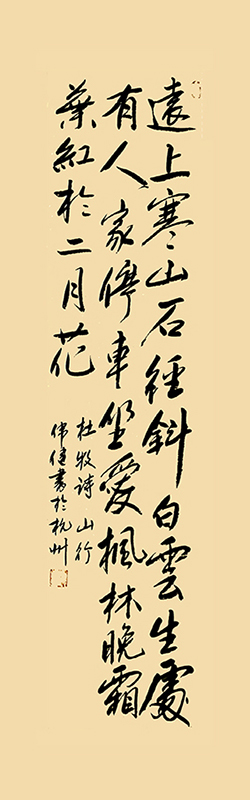 遠上寒山石徑斜白雲生處
有人家停車坐愛楓林晚霜
葉紅於二月花
杜牧诗 山行
伟健書於杭州